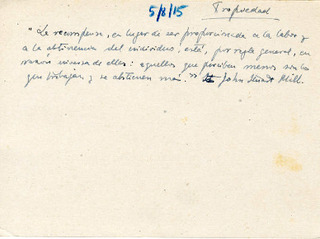 5/8/15 Propiedad
"La recompensa, en lugar de ser proporcionada a la labor y
a la abstinencia del individuo, está, por regla general, en
razón inversa de ellos: aquellos que perciben menos son los
que trabajan y se abstienen más." John Stuart Mill.